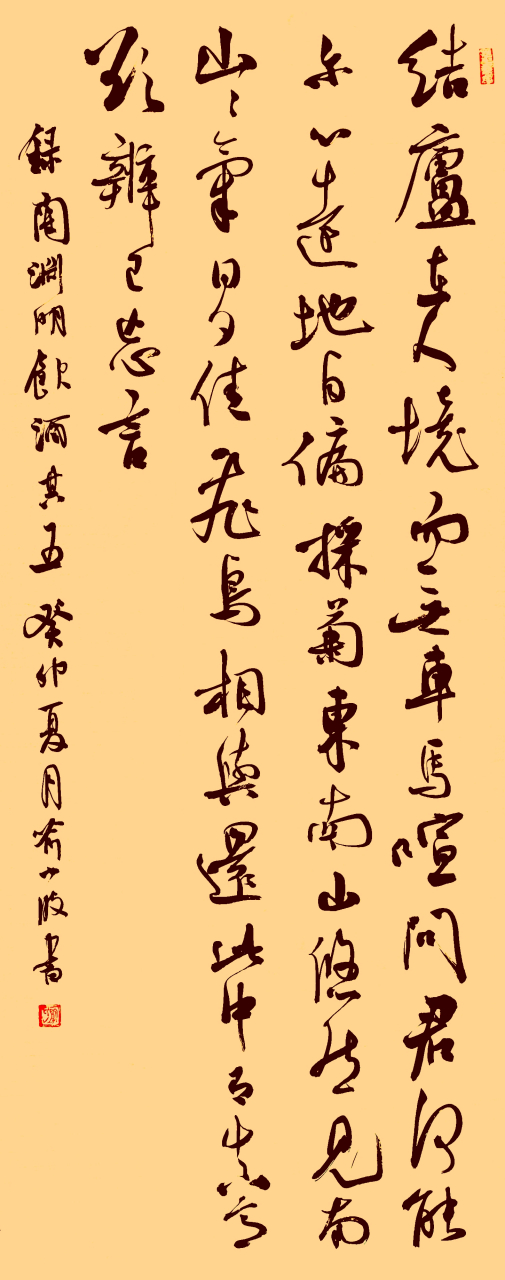 結廬在人境而無車馬喧問君何能
尔心遠地自偏採菊東南山悠然見南
山〻氣日夕佳飛鳥相與還此中有真意
欲辨已忘言
錄陶淵明飲酒其五 癸卯夏月俞小書